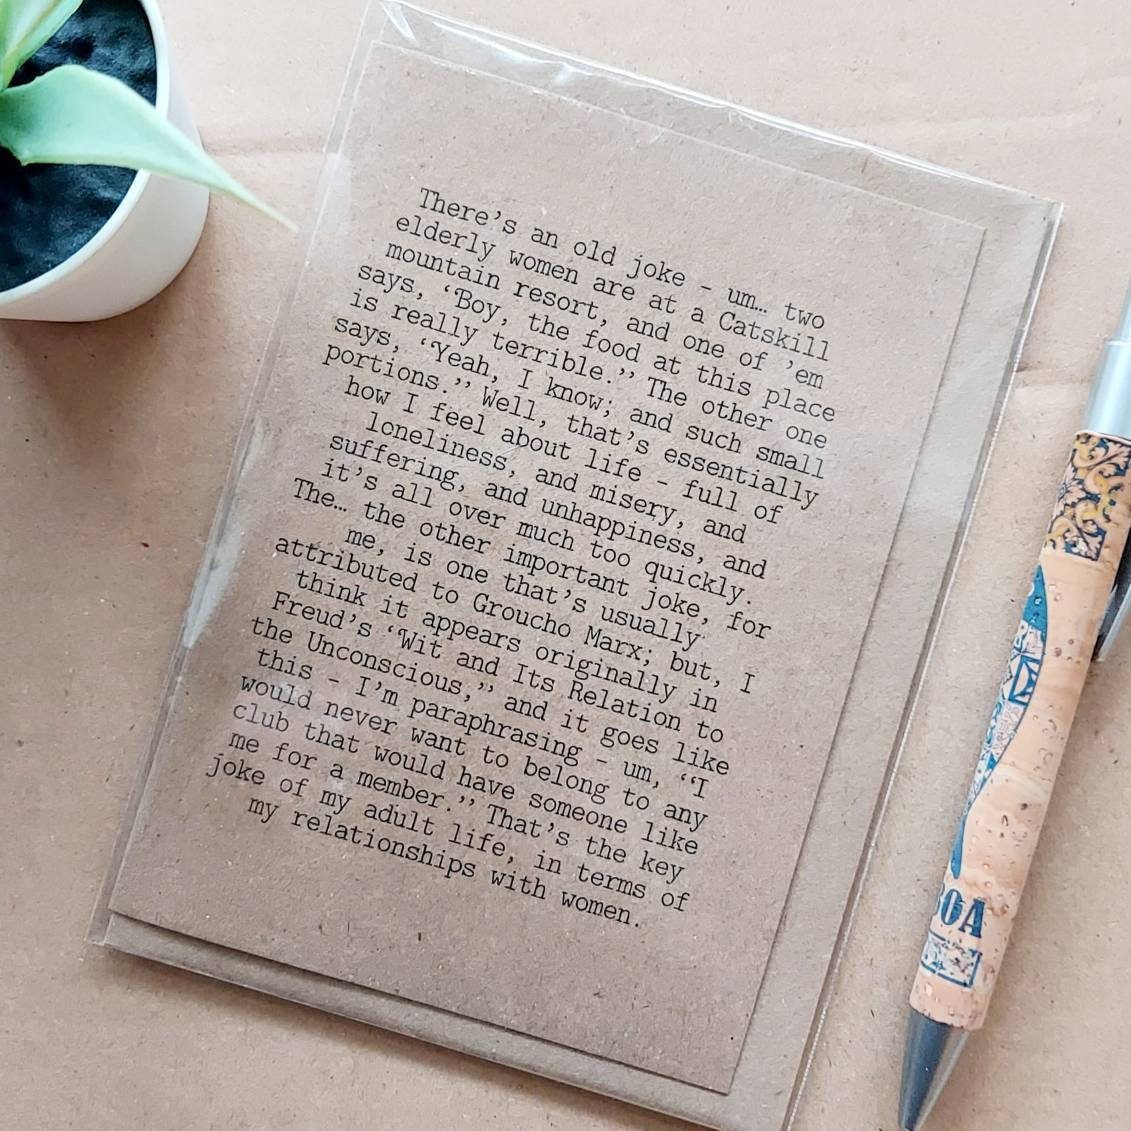 There’s an old joke - um… two
elderly women are at a Catskill
mountain resort, and one of ’em
says, “Boy, the food at this place
is really terrible.” The other one
says, “Yeah, I know; and such small
portions.” Well, that’s essentially
how I feel about life - full of
loneliness, and misery, and
suffering, and unhappiness, and
it’s all over much too quickly.
The… the other important joke, for
me, is one that’s usually
attributed to Groucho Marx; but, I
think it appears originally in
Freud’s “Wit and Its Relation to
the Unconscious,” and it goes like
this - I’m paraphrasing - um, “I
would never want to belong to any
club that would have someone like
me for a member.” That’s the key
joke of my adult life, in terms of
my relationships with women.